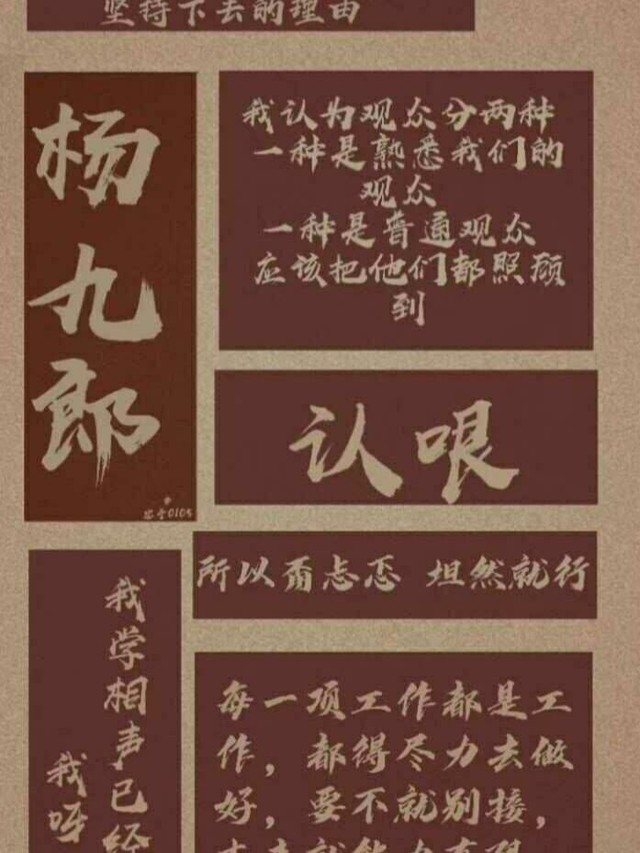 坚持下去的理由
杨九郎
我认为观众分两种
一种是熟悉我们的
观众
一种是普通观众
应该把他们都照顾
到
认哏
所以甭忐忑 坦然就行
我学相声已经
我呀
每一项工作都是工
作，都得尽力去做
好，要不就别接，